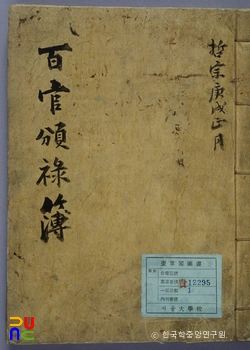 哲宗庚戌正月
百官頒祿簿
奎章閣圖書
12295
서울大學校
ⓒ 한국학중앙연구원